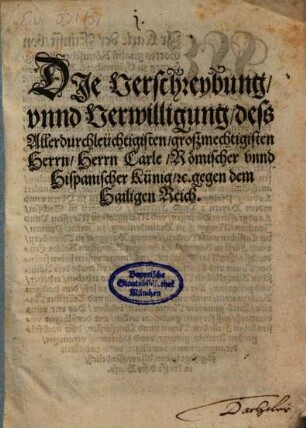 DIe Verschreybung/
vnnd Verwilligung/dess
Allerdurchleüchtigisten/großmechtigisten
Herrn/Herrn Carle/Römischer vnnd
Hispanischer Künig/ꝛc. gegen dem
Hailigen Reich.
Bayerische
Staatsbibliothek
München